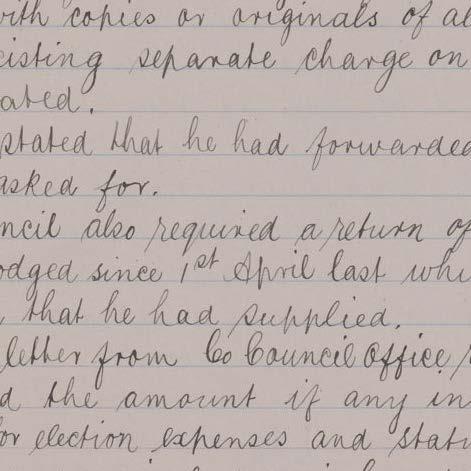 with copies or originals of al
existing separate charge on
ated.
stated that he had forwarded
asked for.
ncil also required a return of
odged since 1st April last whi
, that he had supplied.
letter from Co Council Office,
d the amount if any in
or election expenses and statu